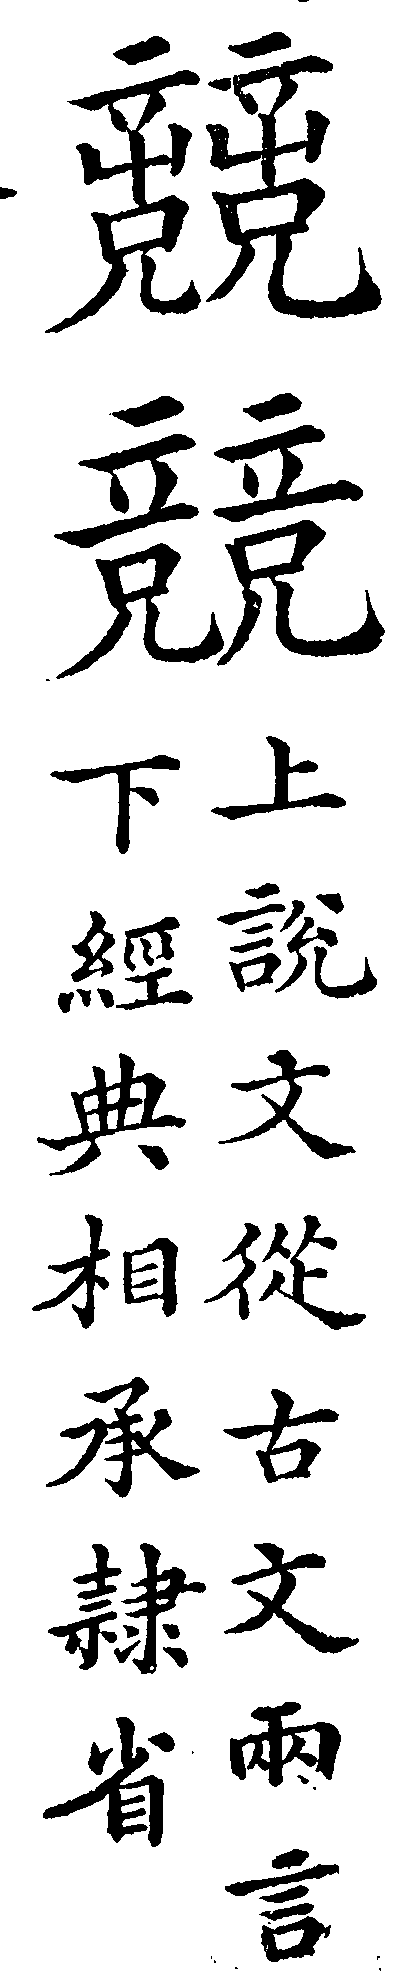 競
上說文從古文兩言
下經典相承隸省